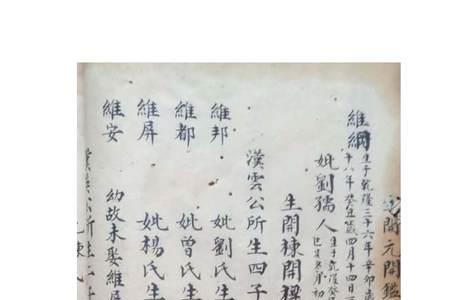 開元開鑑
維綱
生于乾隆三十六年辛卯
十八年癸丑歲四月十四日
妣劉孺人
生于乾隆癸
生開棟開樑
漢雲公所生四子
維邦 妣劉氏生
維都 妣曾氏生
維屏 妣楊氏生
維安 幼故未娶維屏
公所生二子